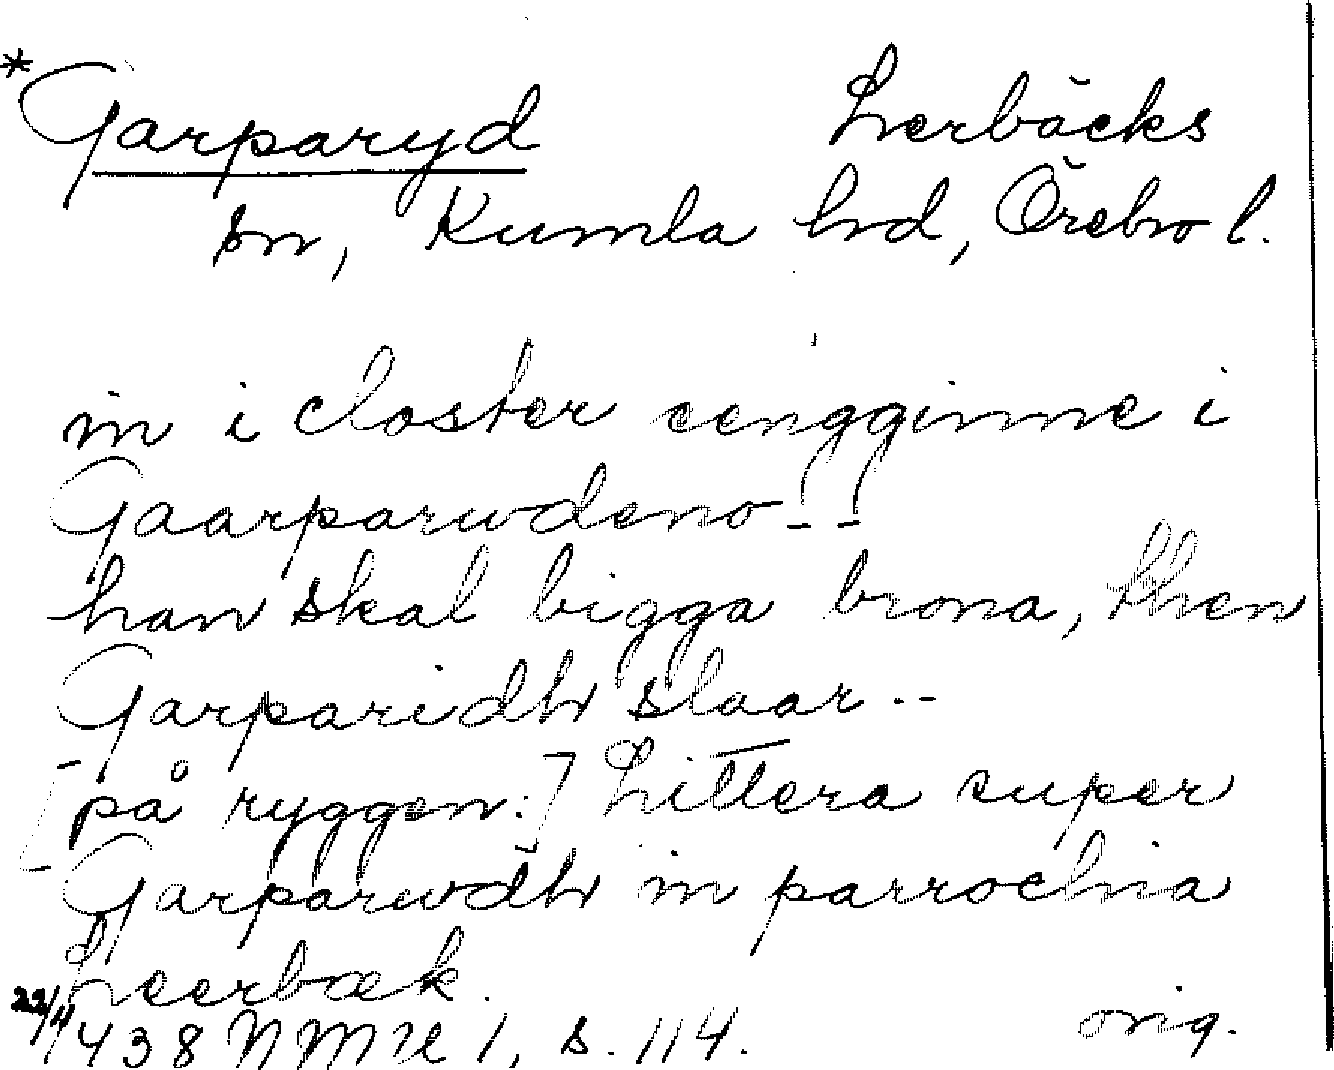 *Garparyd Lerbäcks
sn, Kumla hd, Örebro l.
in i closter eengginne i
Gaarparwdeno --
han skal bigga brona, then
Garparidh slaar --
[på ryggen:] Littera super
Garparwdh in parrochia
Leerbæk.
22/4 1438 NMU 1, s. 114. orig.